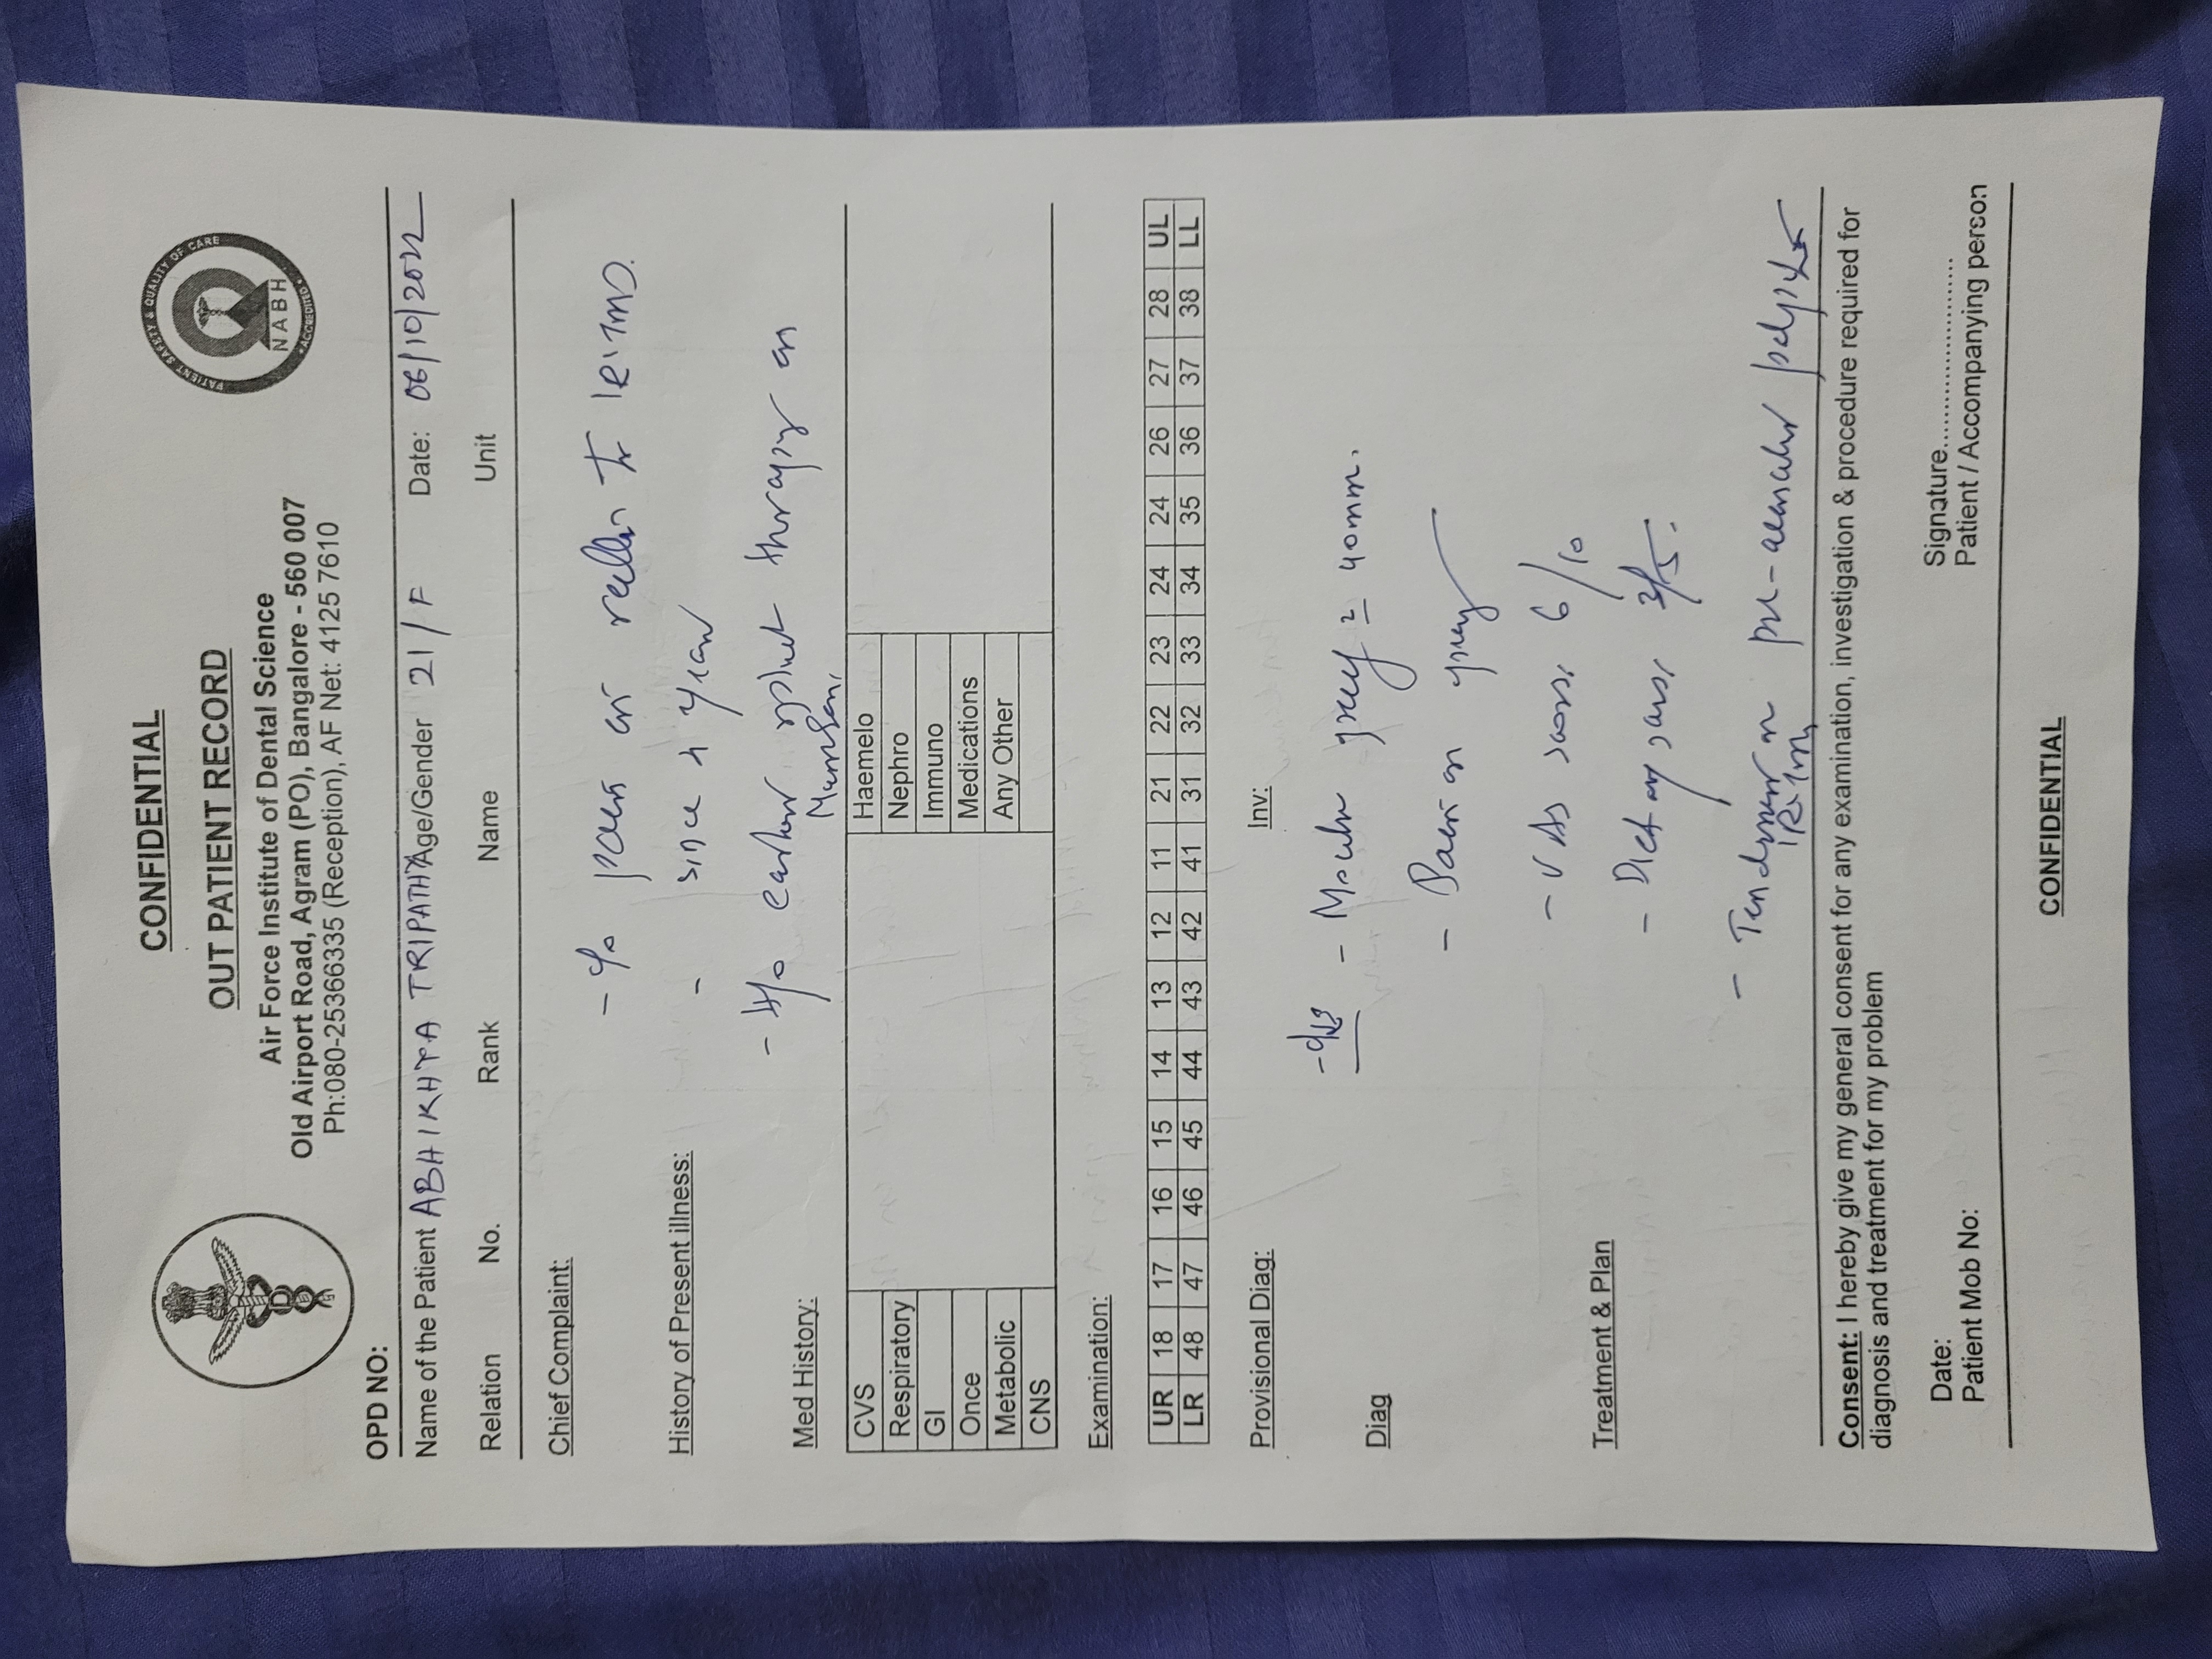 CONFIDENTIAL
OUT PATIENT RECORD
Air Force Institute of Dental Science
Old Airport Road, Agram (PO), Bangalore - 560 007
Ph:080-25366335 (Reception), AF Net: 4125 7610
PATIENT SAFETY & QUALITY OF CARE
NABH
ACCREDITED
OPD NO:
Name of the Patient ABHIKHYA TRIPATHY Age/Gender 21/F Date: 06/10/2022
Relation No. Rank Name Unit
Chief Complaint:
- c/o pain in to
History of Present illness:
- since year
- H/o earlier splint therapy in
Med History:
CVS Haemelo
Respiratory Nephro
GI Immuno
Once Medications
Metabolic Any Other
CNS
Examination:
UR 18 17 16 15 14 13 12 11 21 22 23 24 24 26 27 28 UL
LR 48 47 46 45 44 43 42 41 31 32 33 34 35 36 37 38 LL
Provisional Diag: Inv:
- Mouth = 40mm.
Diag
- Pain on
- VAS score 6/10
Treatment & Plan
- Dietary score 3/5.
- Tenderness on pre-auricular
Consent: I hereby give my general consent for any examination, investigation & procedure required for
diagnosis and treatment for my problem
Date: Signature..........................
Patient Mob No: Patient / Accompanying person
CONFIDENTIAL